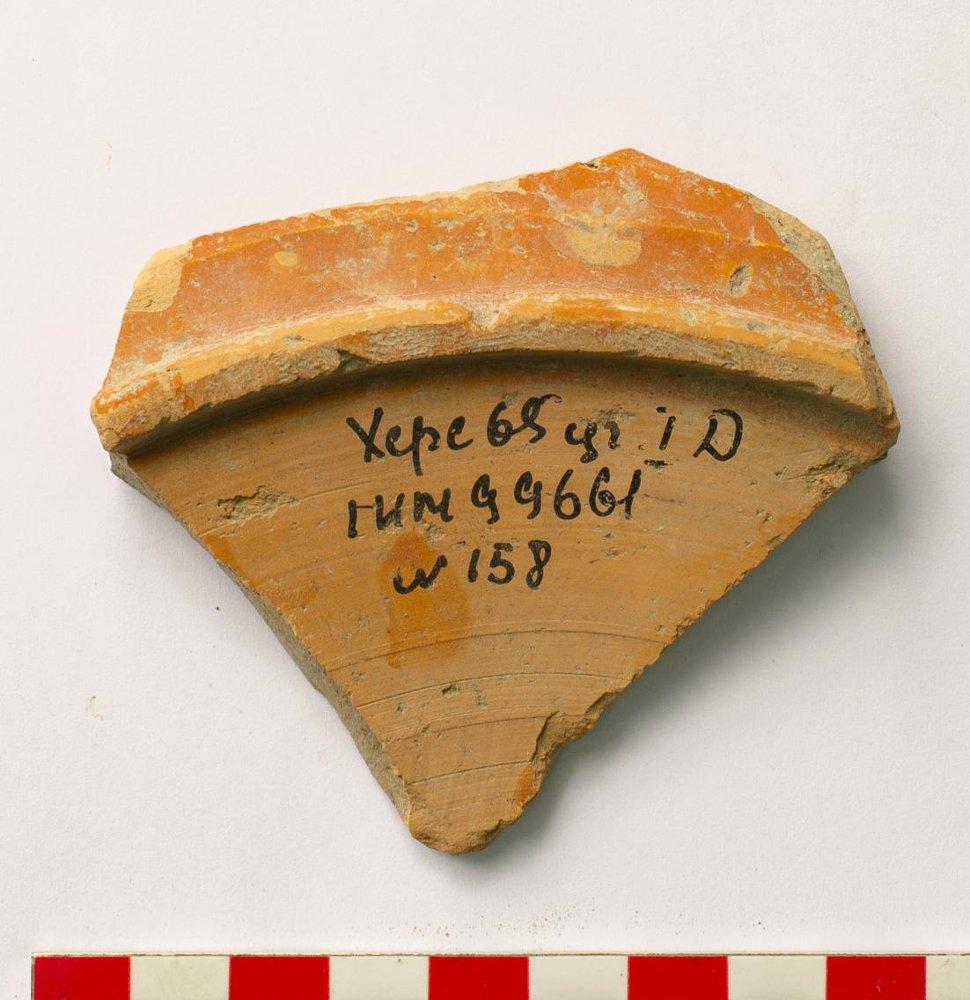 Херс 65 цг I D
ГИМ 99661
№ 158